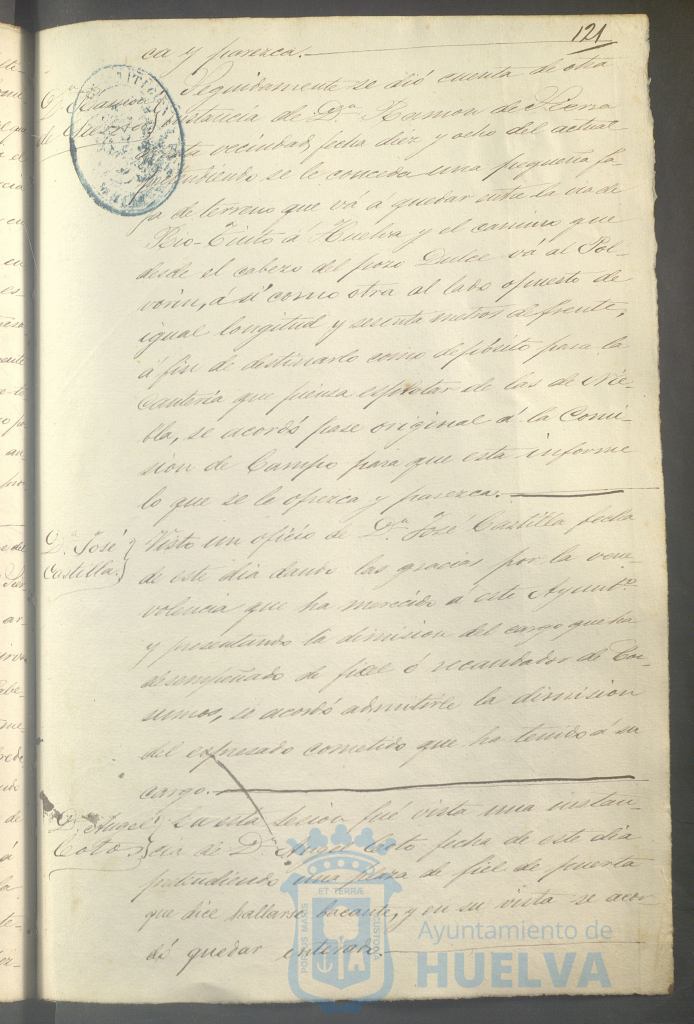 121
ca y parezca.
Seguidamente se dió cuenta de otra
D.n Ramon
de instancia de D.n Ramon de
esta vecindad, fecha diez y ocho del actual
pretendiendo se le conceda una pequeña fa-
ja de terreno que vá a quedar entre la via de
Rio-Tinto á Huelva y el camino que
desde el cabezo del pozo Dulce vá al Pol-
vorin, á si como otra al lado opuesto de
igual longitud y sesenta metros de frente,
á fin de destinarlo como depósito para la
Canteria que piensa esplotar de las de Nie-
bla, se acordó pase original á la Comi-
sion de Campo para que esta informe
lo que se le ofrezca y parezca.
D.n José
Castilla.
Visto un oficio de D.n José Castilla fecha
de este dia dando las gracias por la vene-
volencia que ha merecido á este Ayunt.o
y presentando la dimision del cargo que ha
desempeñado de fiel ó recaudador de Con-
sumos, se acordó admitirle la dimision
del espresado cometido que ha tenido á su
cargo.
D.n Angel
Coto
En esta sesion fué vista una instan-
cia de D.n Angel Coto fecha de este dia
pretendiendo una plaza de fiel de puerta
que dice hallarse bacante, y en su vista se acor-
dó quedar enterado.
PORTUS MARIS ET TERRÆ CUSTODIA
Ayuntamiento de
HUELVA